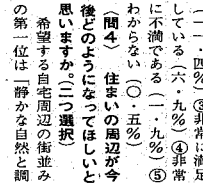 (一一・四％) ③非常に満足
している (六・九％) ④非常
に不満である (一・九％) ⑤
わからない (〇・五％)
〈問４〉 住まいの周辺が今
後どのようになってほしいと
思いますか。(二つ選択)
希望する自宅周辺の街並み
の第一位は「静かな自然と調